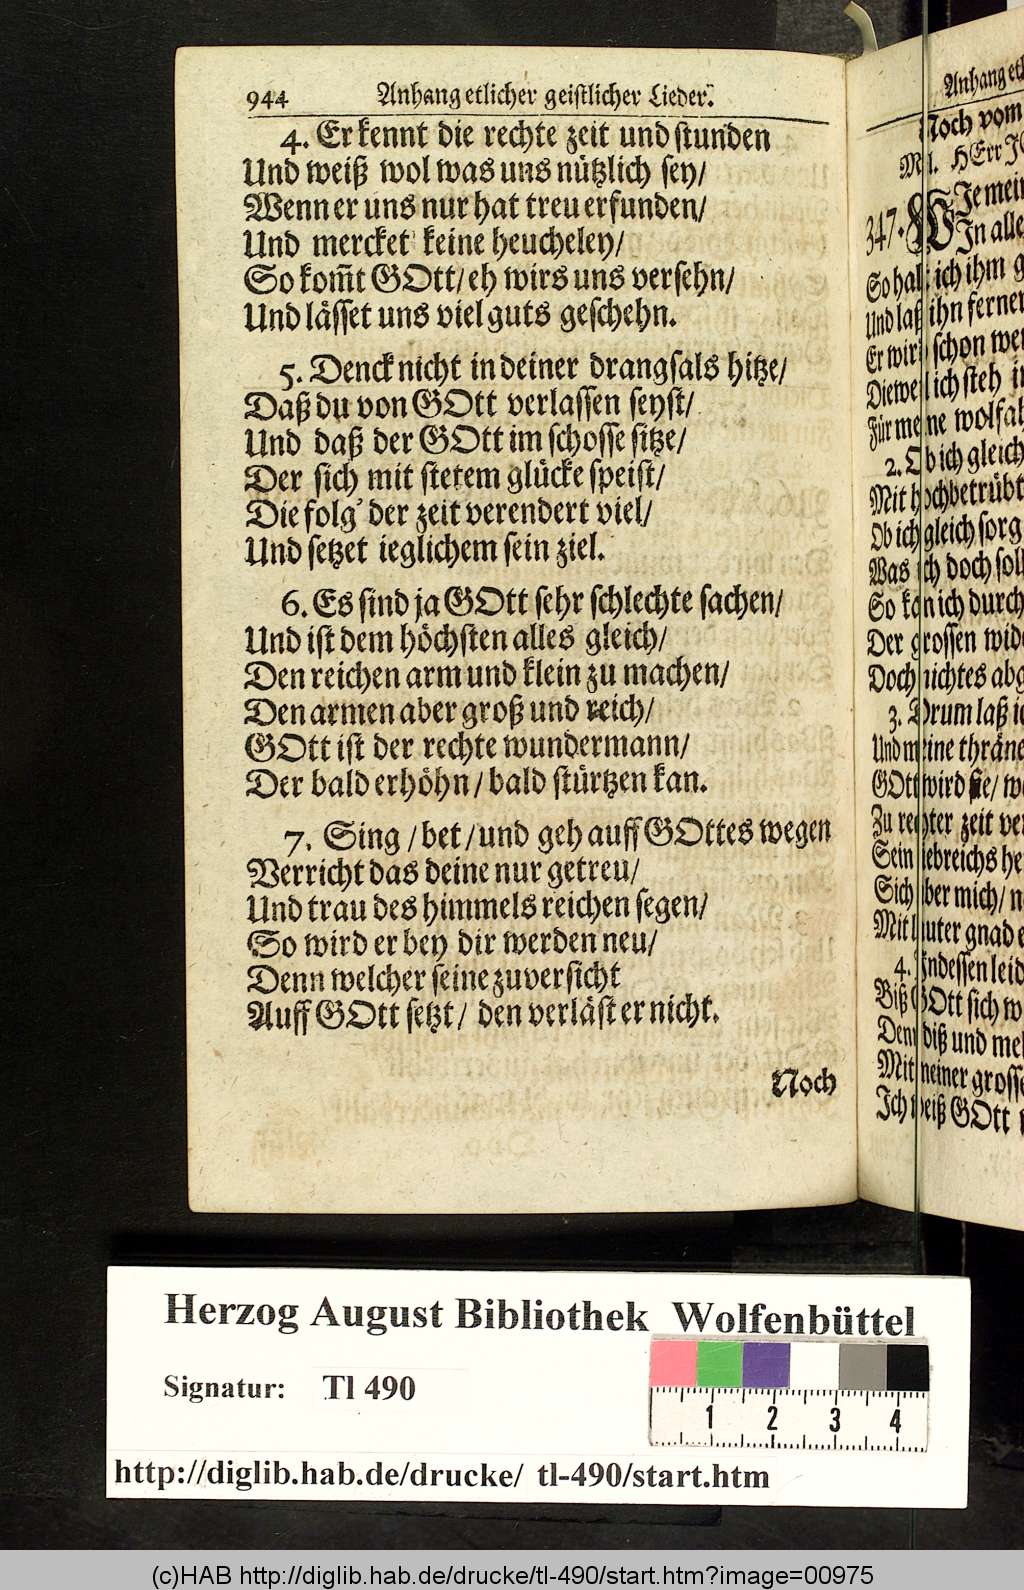 944 Anhang etlicher geistlicher Lieder.
4. Er kennt die rechte zeit und stunden
Und weiß wol was uns nützlich sey/
Wenn er uns nur hat treu erfunden/
Und mercket keine heucheley/
So kom̃t GOtt/ eh wirs uns versehn/
Und lässet uns viel guts geschehn.
5. Denck nicht in deiner drangsals hitze/
Daß du von GOtt verlassen seyst/
Und daß der GOtt im schosse sitze/
Der sich mit stetem glücke speist/
Die folg' der zeit verendert viel/
Und setzet ieglichem sein ziel.
6. Es sind ja GOtt sehr schlechte sachen/
Und ist dem höchsten alles gleich/
Den reichen arm und klein zu machen/
Den armen aber groß und reich/
GOtt ist der rechte wundermann/
Der bald erhöhn/ bald stürtzen kan.
7. Sing/ bet/ und geh auff GOttes wegen
Verricht das deine nur getreu/
Und trau des himmels reichen segen/
So wird er bey dir werden neu/
Denn welcher seine zuversicht
Auff GOtt setzt/ den verläst er nicht.
Noch
Anhang
Noch vom
Mel. HErr
347. WJe mein
Jn alle
So hal ich ihm
Und laß ihn ferner
Er wird schon
Diewe ich steh
Für meine
2. Ob ich gleich
Mit hochbetrübt
Ob ich gleich sorg
Was ich doch soll
So kan ich durch
Der grossen
Doch nichtes
3. Drum laß
Und meine
GOtt wird sie/
Zu rechter zeit
Sein liebreichs
Sich über mich/
Mit lauter gnad
4. Indessen
Biß GOtt sich
Denn diß und
Mit meiner
Ich weiß GOtt
Herzog August Bibliothek Wolfenbüttel
Signatur: Tl 490
1 2 3 4
http://diglib.hab.de/drucke/ tl-490/start.htm
(c)HAB http://diglib.hab.de/drucke/tl-490/start.htm?image=00975